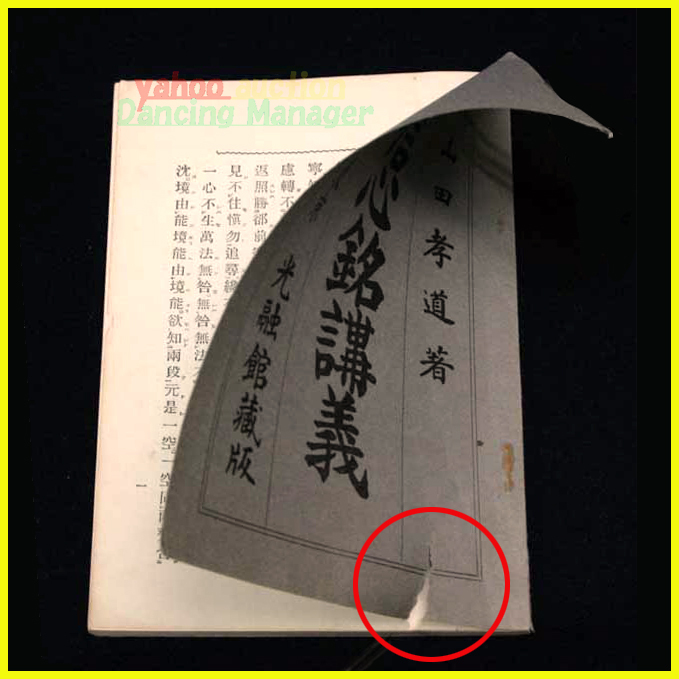 yahoo auction
Dancing Manager
山田孝道著
心銘講義
光融館藏版
寧
慮轉不
返照勝郤前
見不住愼勿追尋纔
一心不生萬法無咎無咎無法
沈境由能境能由境能欲知兩段元是一空一空同
一